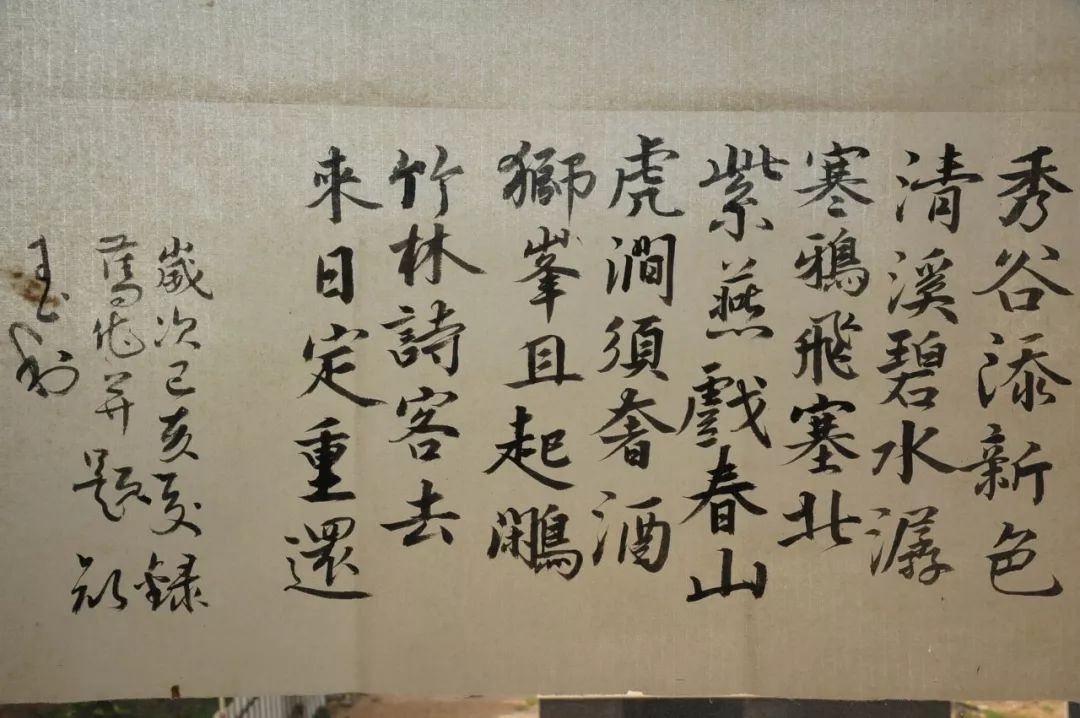 秀谷添新色
清溪碧水潺
寒鴉飛塞北
紫燕戲春山
虎澗須奢酒
獅峯且起鷴
竹林詩客去
來日定重還
歲次己亥夏錄
舊作并題